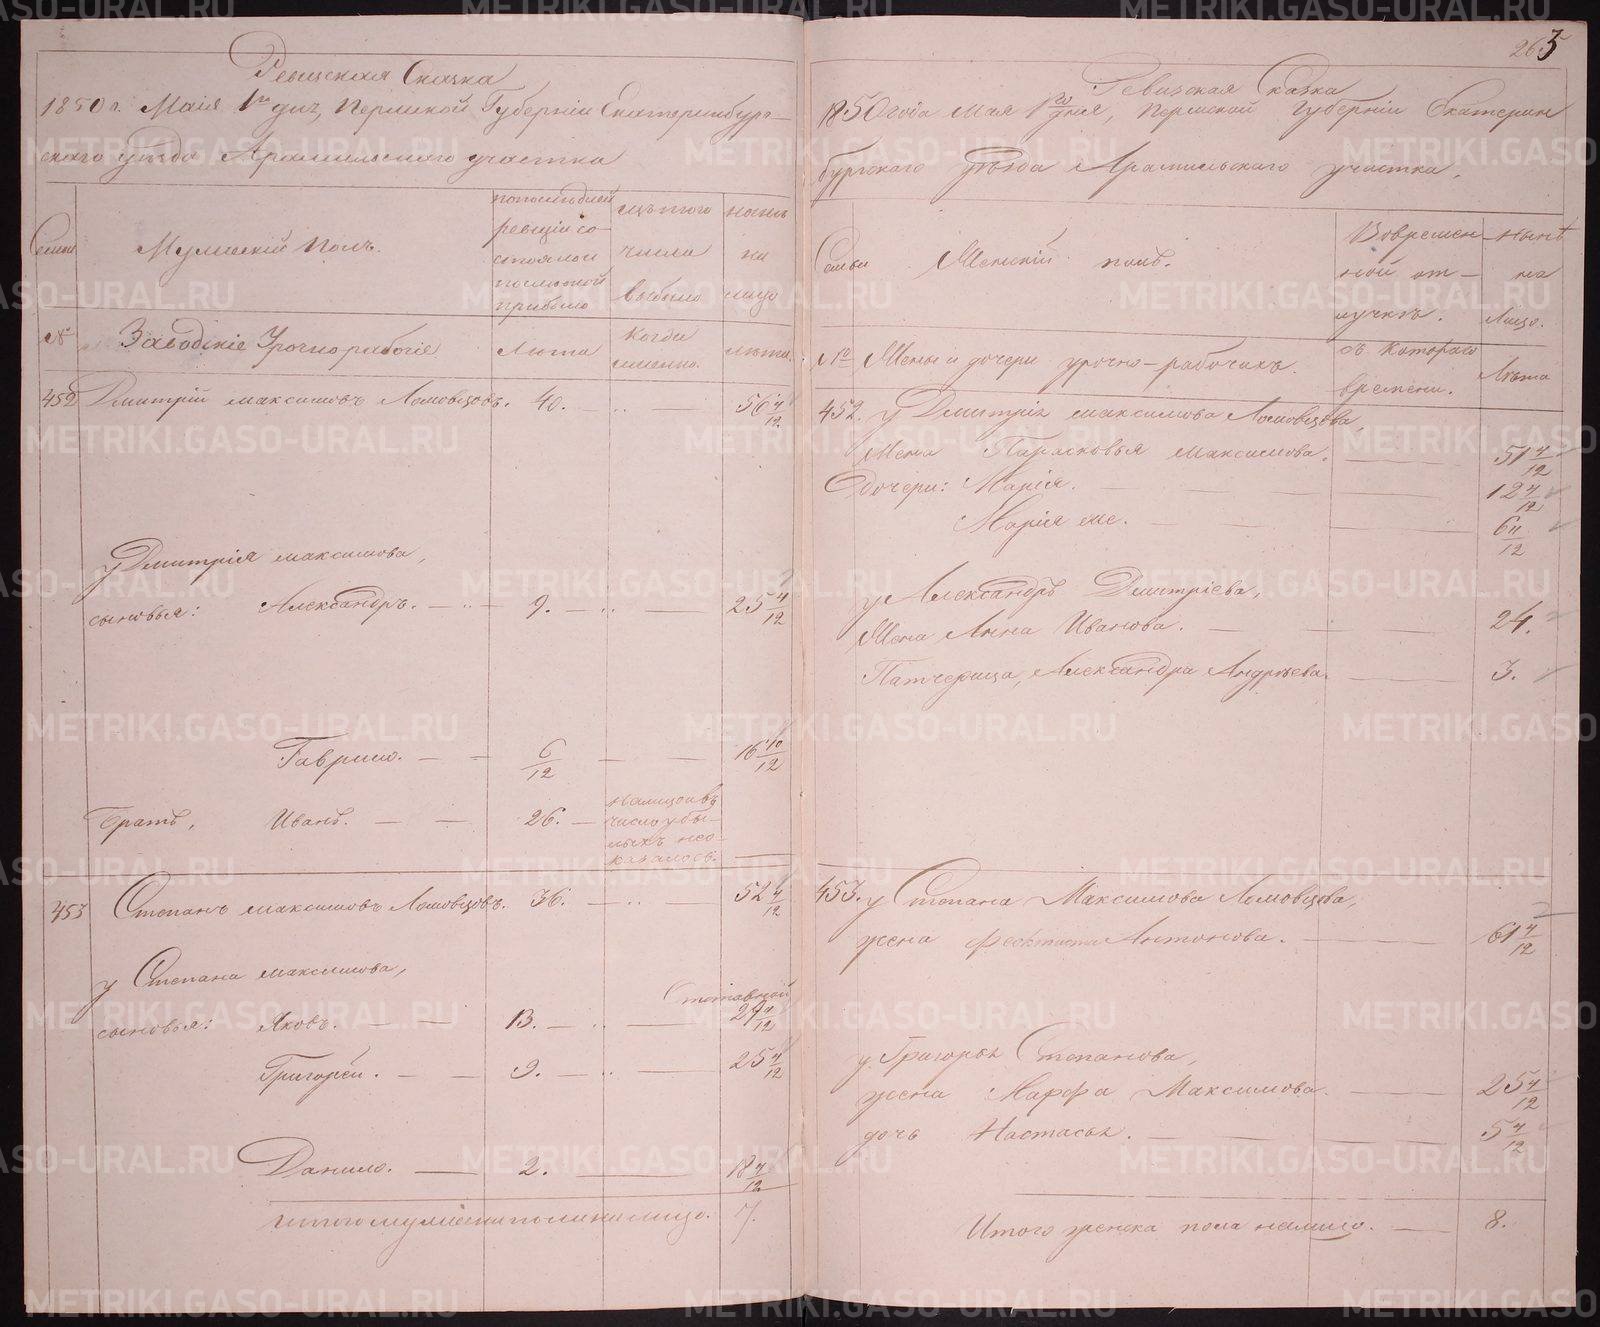 Ревизская Сказка
1850 г. Маія 1го дня, Пермской Губерніи Екатеринбург-
скаго уѣзда Арамильскаго участка
Семьи
Мужескій Полъ.
попоследней ревизіи состояло и послѣ оной прибыло
изъ того числа выбыло
нынѣ на лицо
№
Заводскіе Урочнорабочіе
Лѣта
Когда именно.
лѣта.
452 Дмитрій максимовъ Ломовцовъ. 40. 56 4/12
у Дмитрія максимова,
сыновья: Александръ. 9. 25 4/12
Гаврило. 6/12 16 10/12
Братъ, Иванъ. 26.
453 Степанъ максимовъ Ломовцовъ. 36. 52 4/12
у Степана максимова,
сыновья: Яковъ. 13. 29 4/12
Григорей. 9. 25 4/12
Данило. 2. 18 4/12
итого мужеска пола на лицо. 7.
265
Ревизская Сказка
1850 года Мая 1го дня, Пермской Губерніи Екатерин
бургскаго уѣзда Арамильскаго участка.
Семьи
Женскій полъ.
Вовремен-
ной от-
лучкѣ.
нынѣ
на
Лицо.
№ Жены и дочери урочно-рабочихъ.
съ котораго
времени.
Лѣта
452. у Дмитрія максимова Ломовцова,
Жена Парасковья максимова. 51 4/12
дочери: Марія. 12 4/12
Марія же. 6 4/12
у Александръ Дмитріева,
Жена Анна Иванова. 24.
Патчерица, Александра Андрѣева. 3.
453. у Степана Максимова Ломовцова,
жена Феоктиста Антонова. 61 4/12
у Григорья Степанова,
жена Марфа Максимова. 25 4/12
дочь Настасья. 5 4/12
Итого женска пола налицо. 8.
METRIKI.GASO-URAL.RU